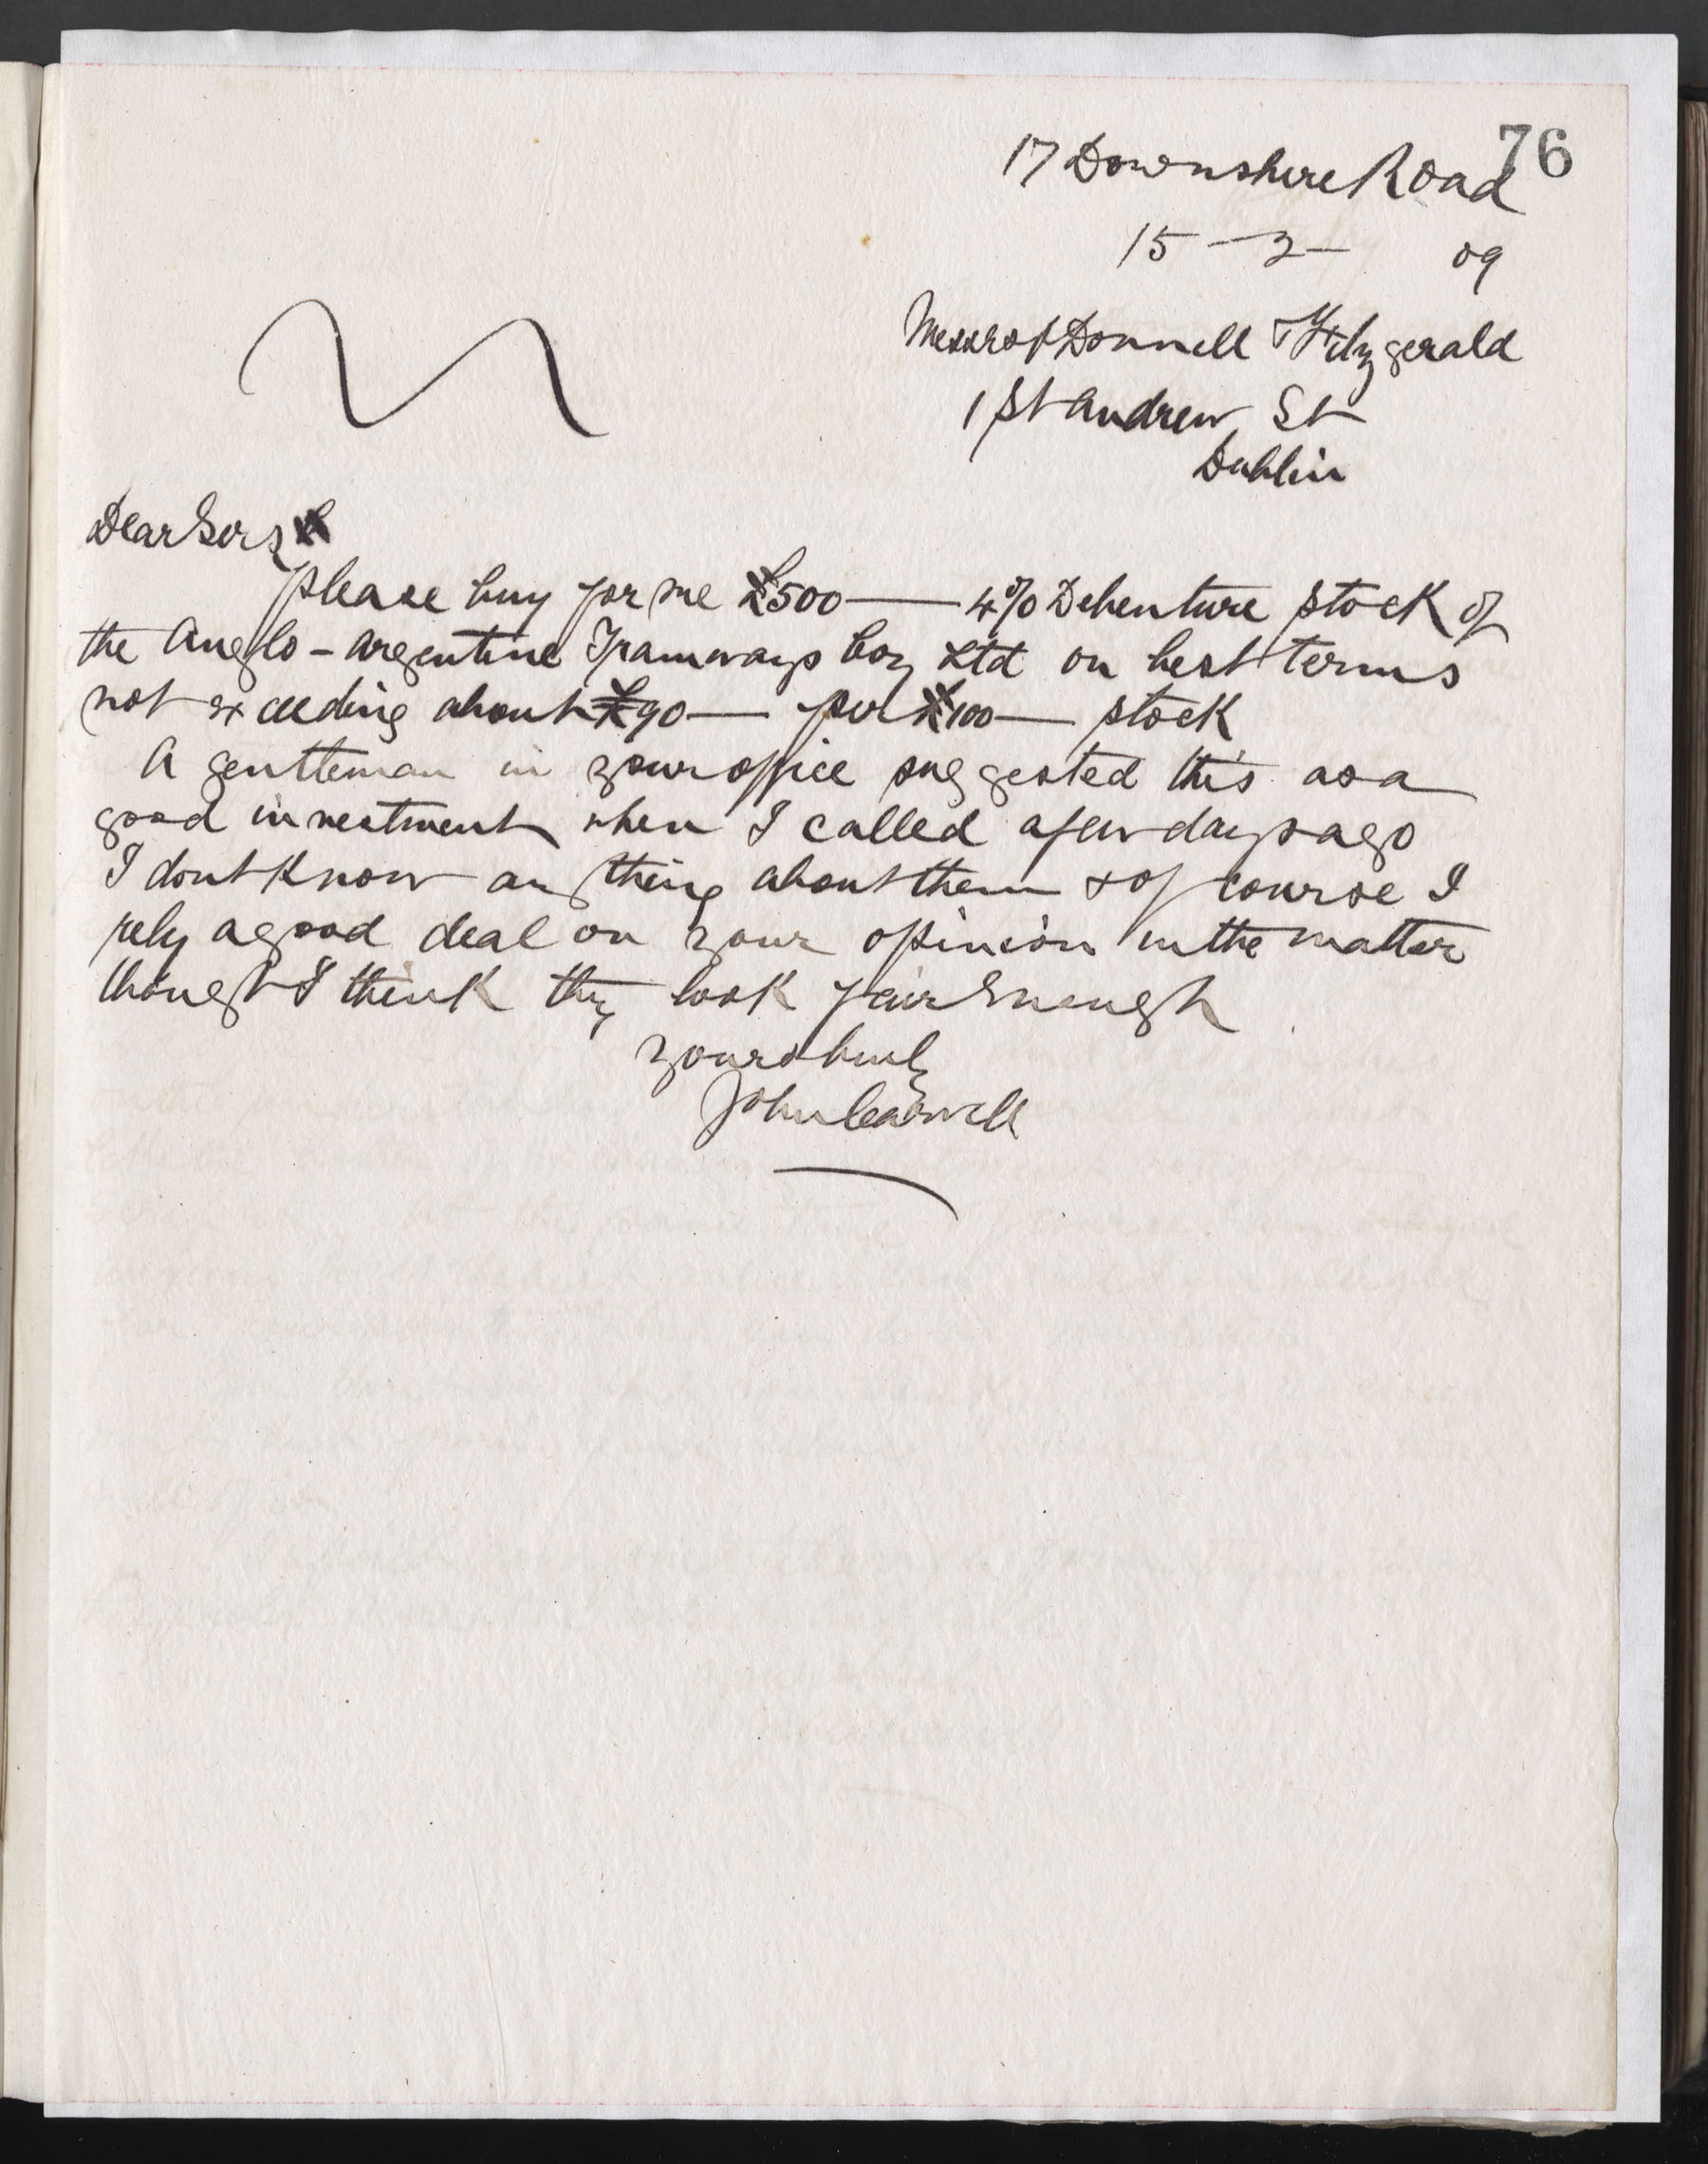 76
17 Downshire Road
15 - 2 - 09
Messrs O'Donnell & Fitzgerald
1 St Andrew St
Dublin
Dear Sirs
please buy for me £500 — 4% Debenture stock of
the Anglo-Argentine Tramways Coy Ltd on best terms
not exceeding about £90 — per £100 — stock
A gentleman in your office suggested this as a
good investment when I called a few days ago
I dont know anything about them & of course I
rely a good deal on your opinion in the matter
though I think they look fair Enough
yours truly
John